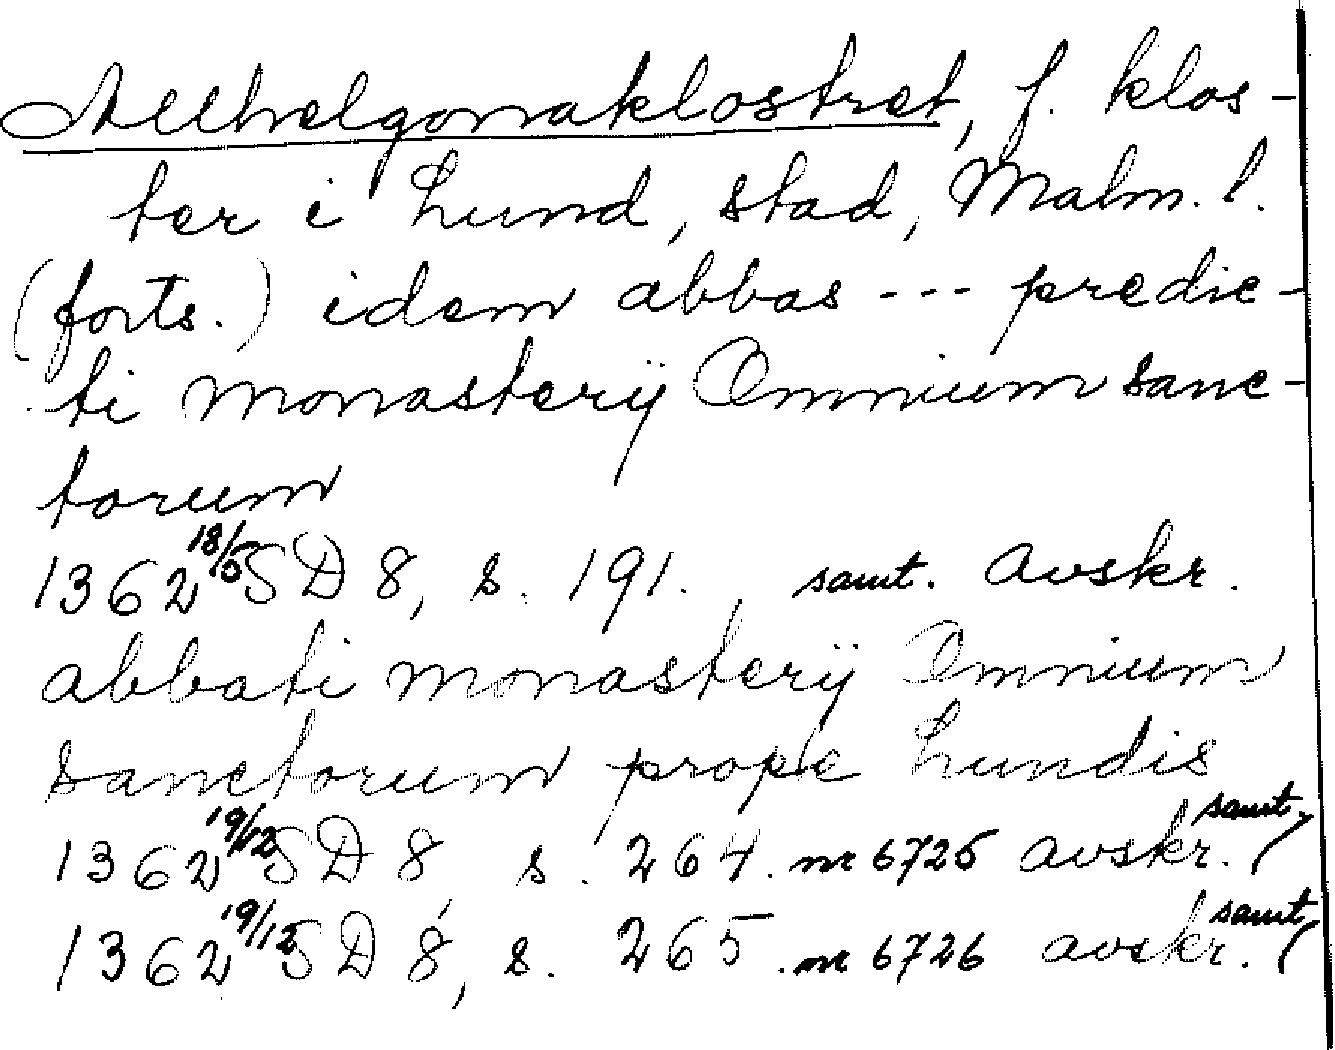 Allhelgonaklostret, f. klos-
ter i Lund, stad, Malm. l.
(forts.) idem abbas --- predic-
ti monasterij Omnium sanc-
torum
1362 18/5 SD 8, s. 191. samt. avskr.
abbati monasterij Omnium
sanctorum prope Lundis
1362 19/12 SD 8, s. 264. nr 6725 samt. avskr.
1362 19/12 SD 8, s. 265. nr 6726 samt. avskr.